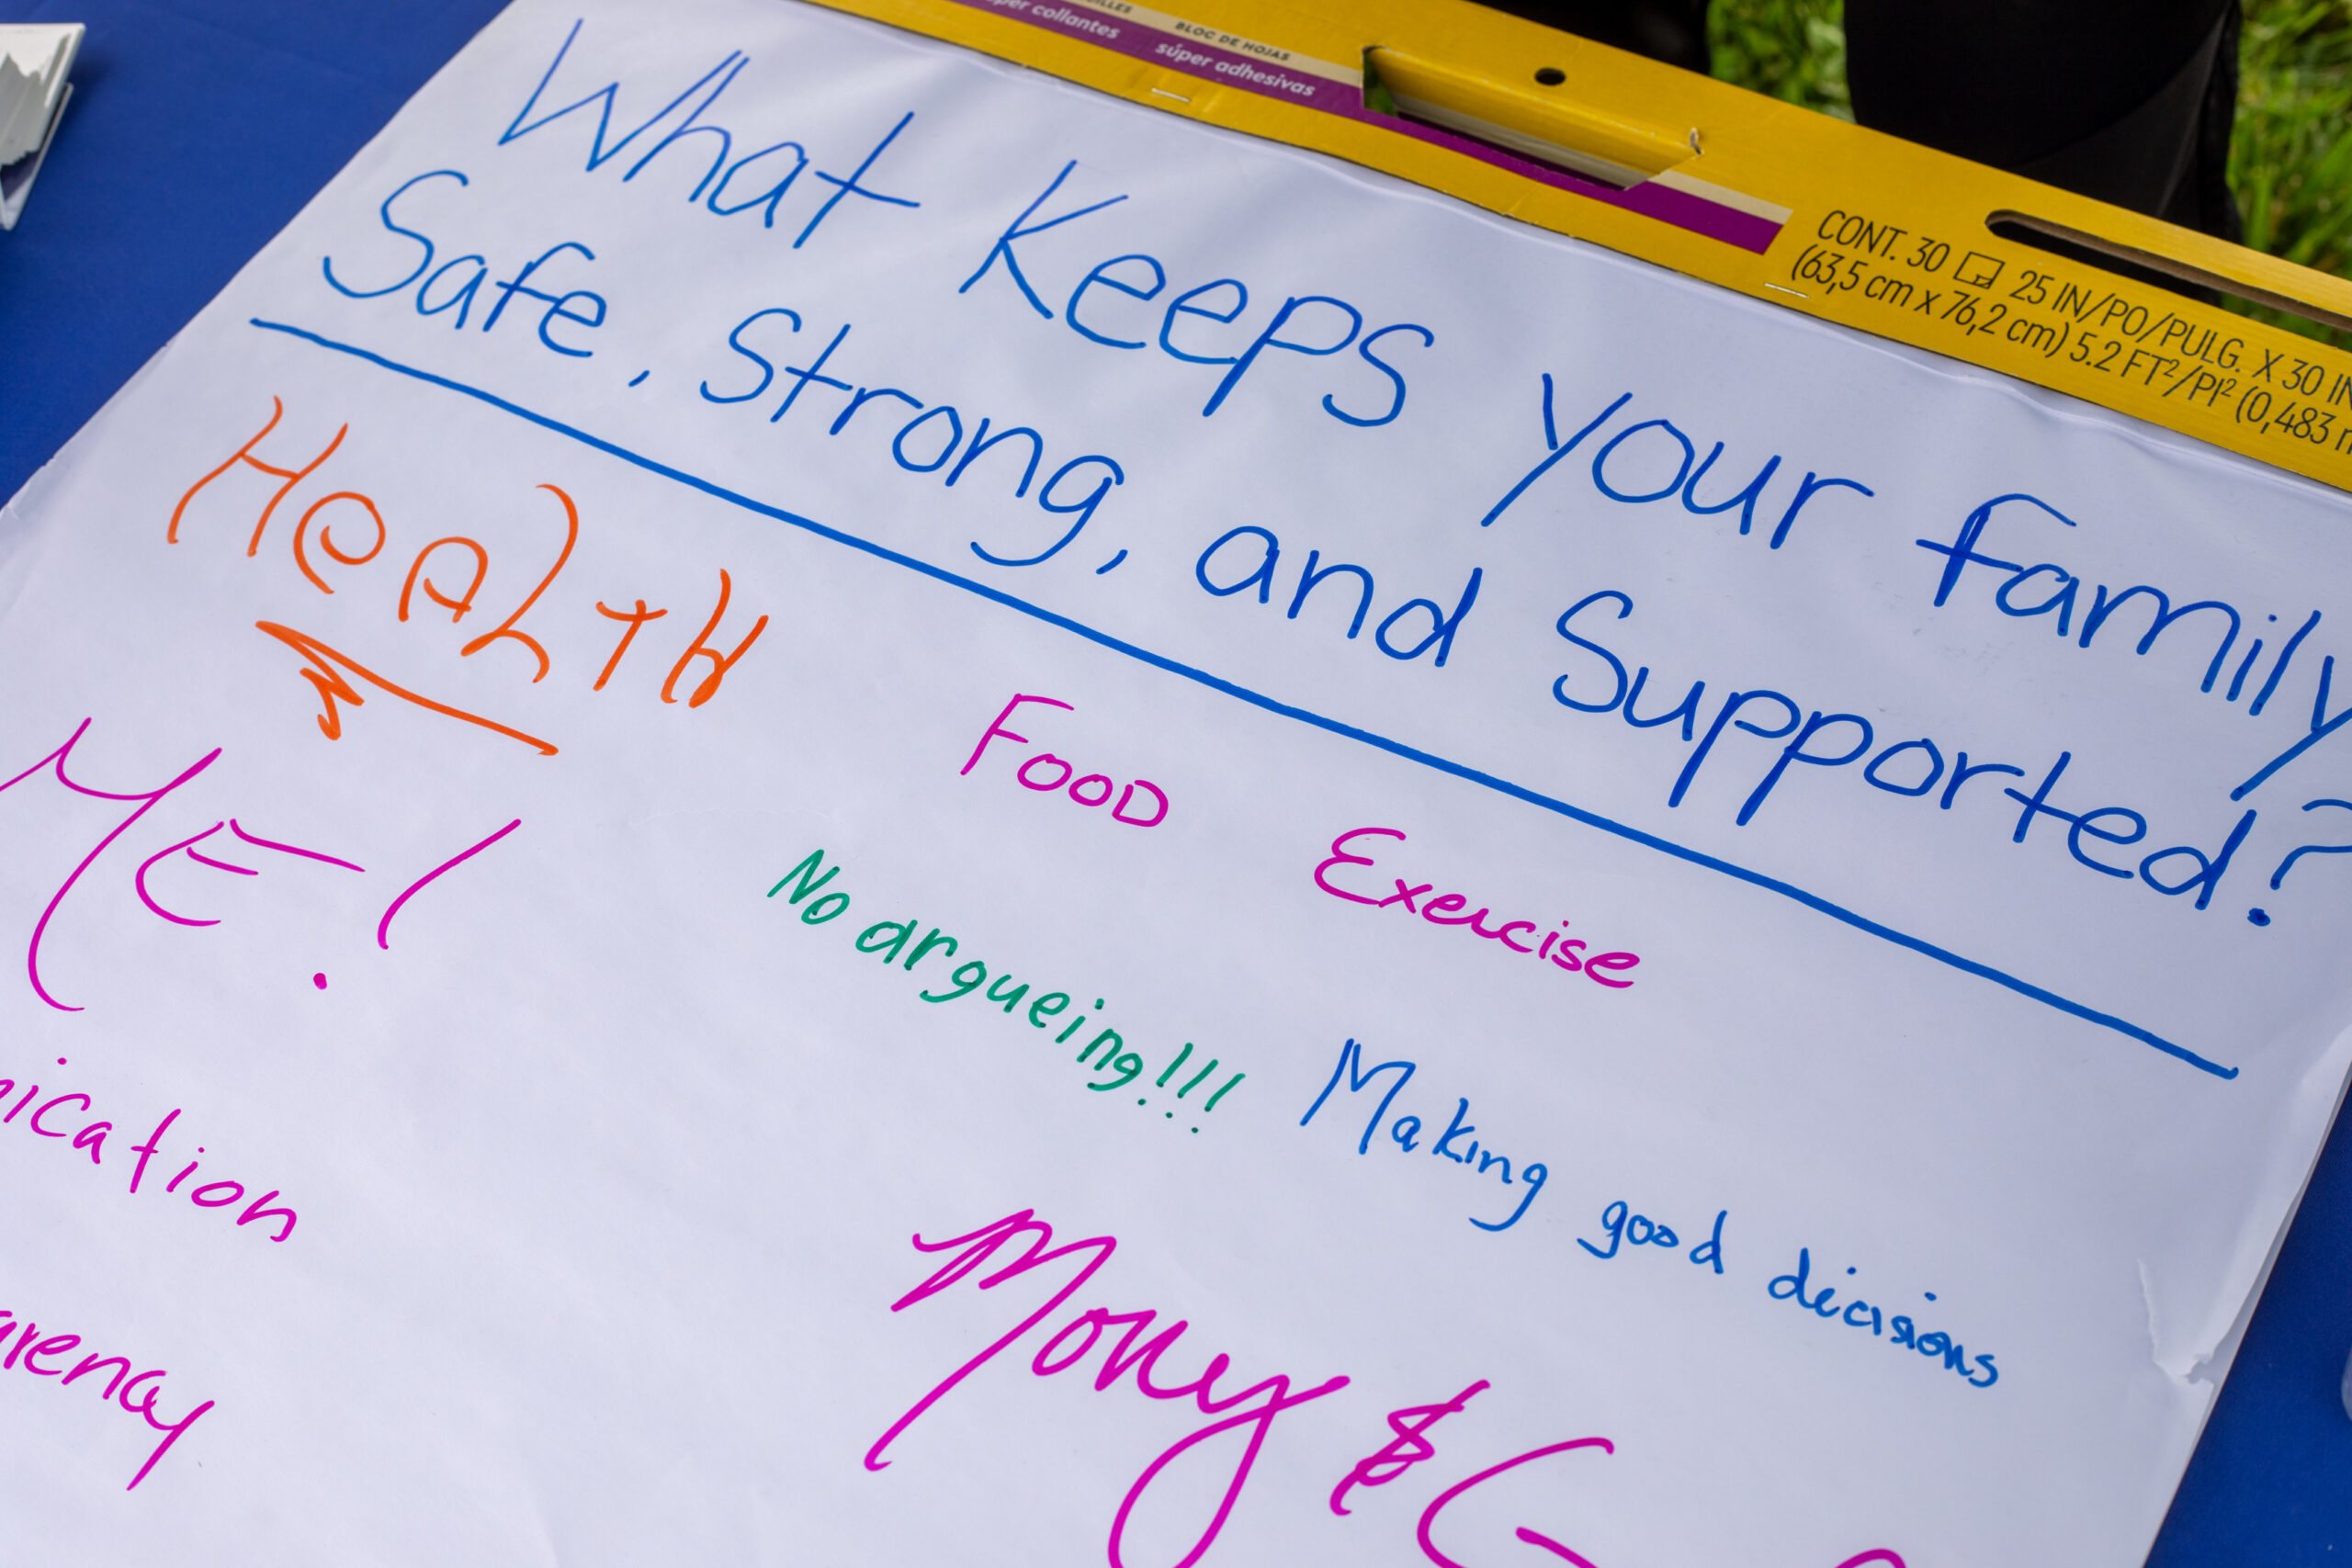 super collantes
BLOC DE HOJAS
súper adhesivas
CONT. 30 25 IN/PO/PULG. X 30 IN
(63,5 cm x 76,2 cm) 5.2 FT²/PI² (0,483 m
What Keeps your family
Safe, Strong, and Supported?
HeALTH
FOOD
Exercise
ME!
No argueing!!!
Making good decisions
nication
Mony &
arency